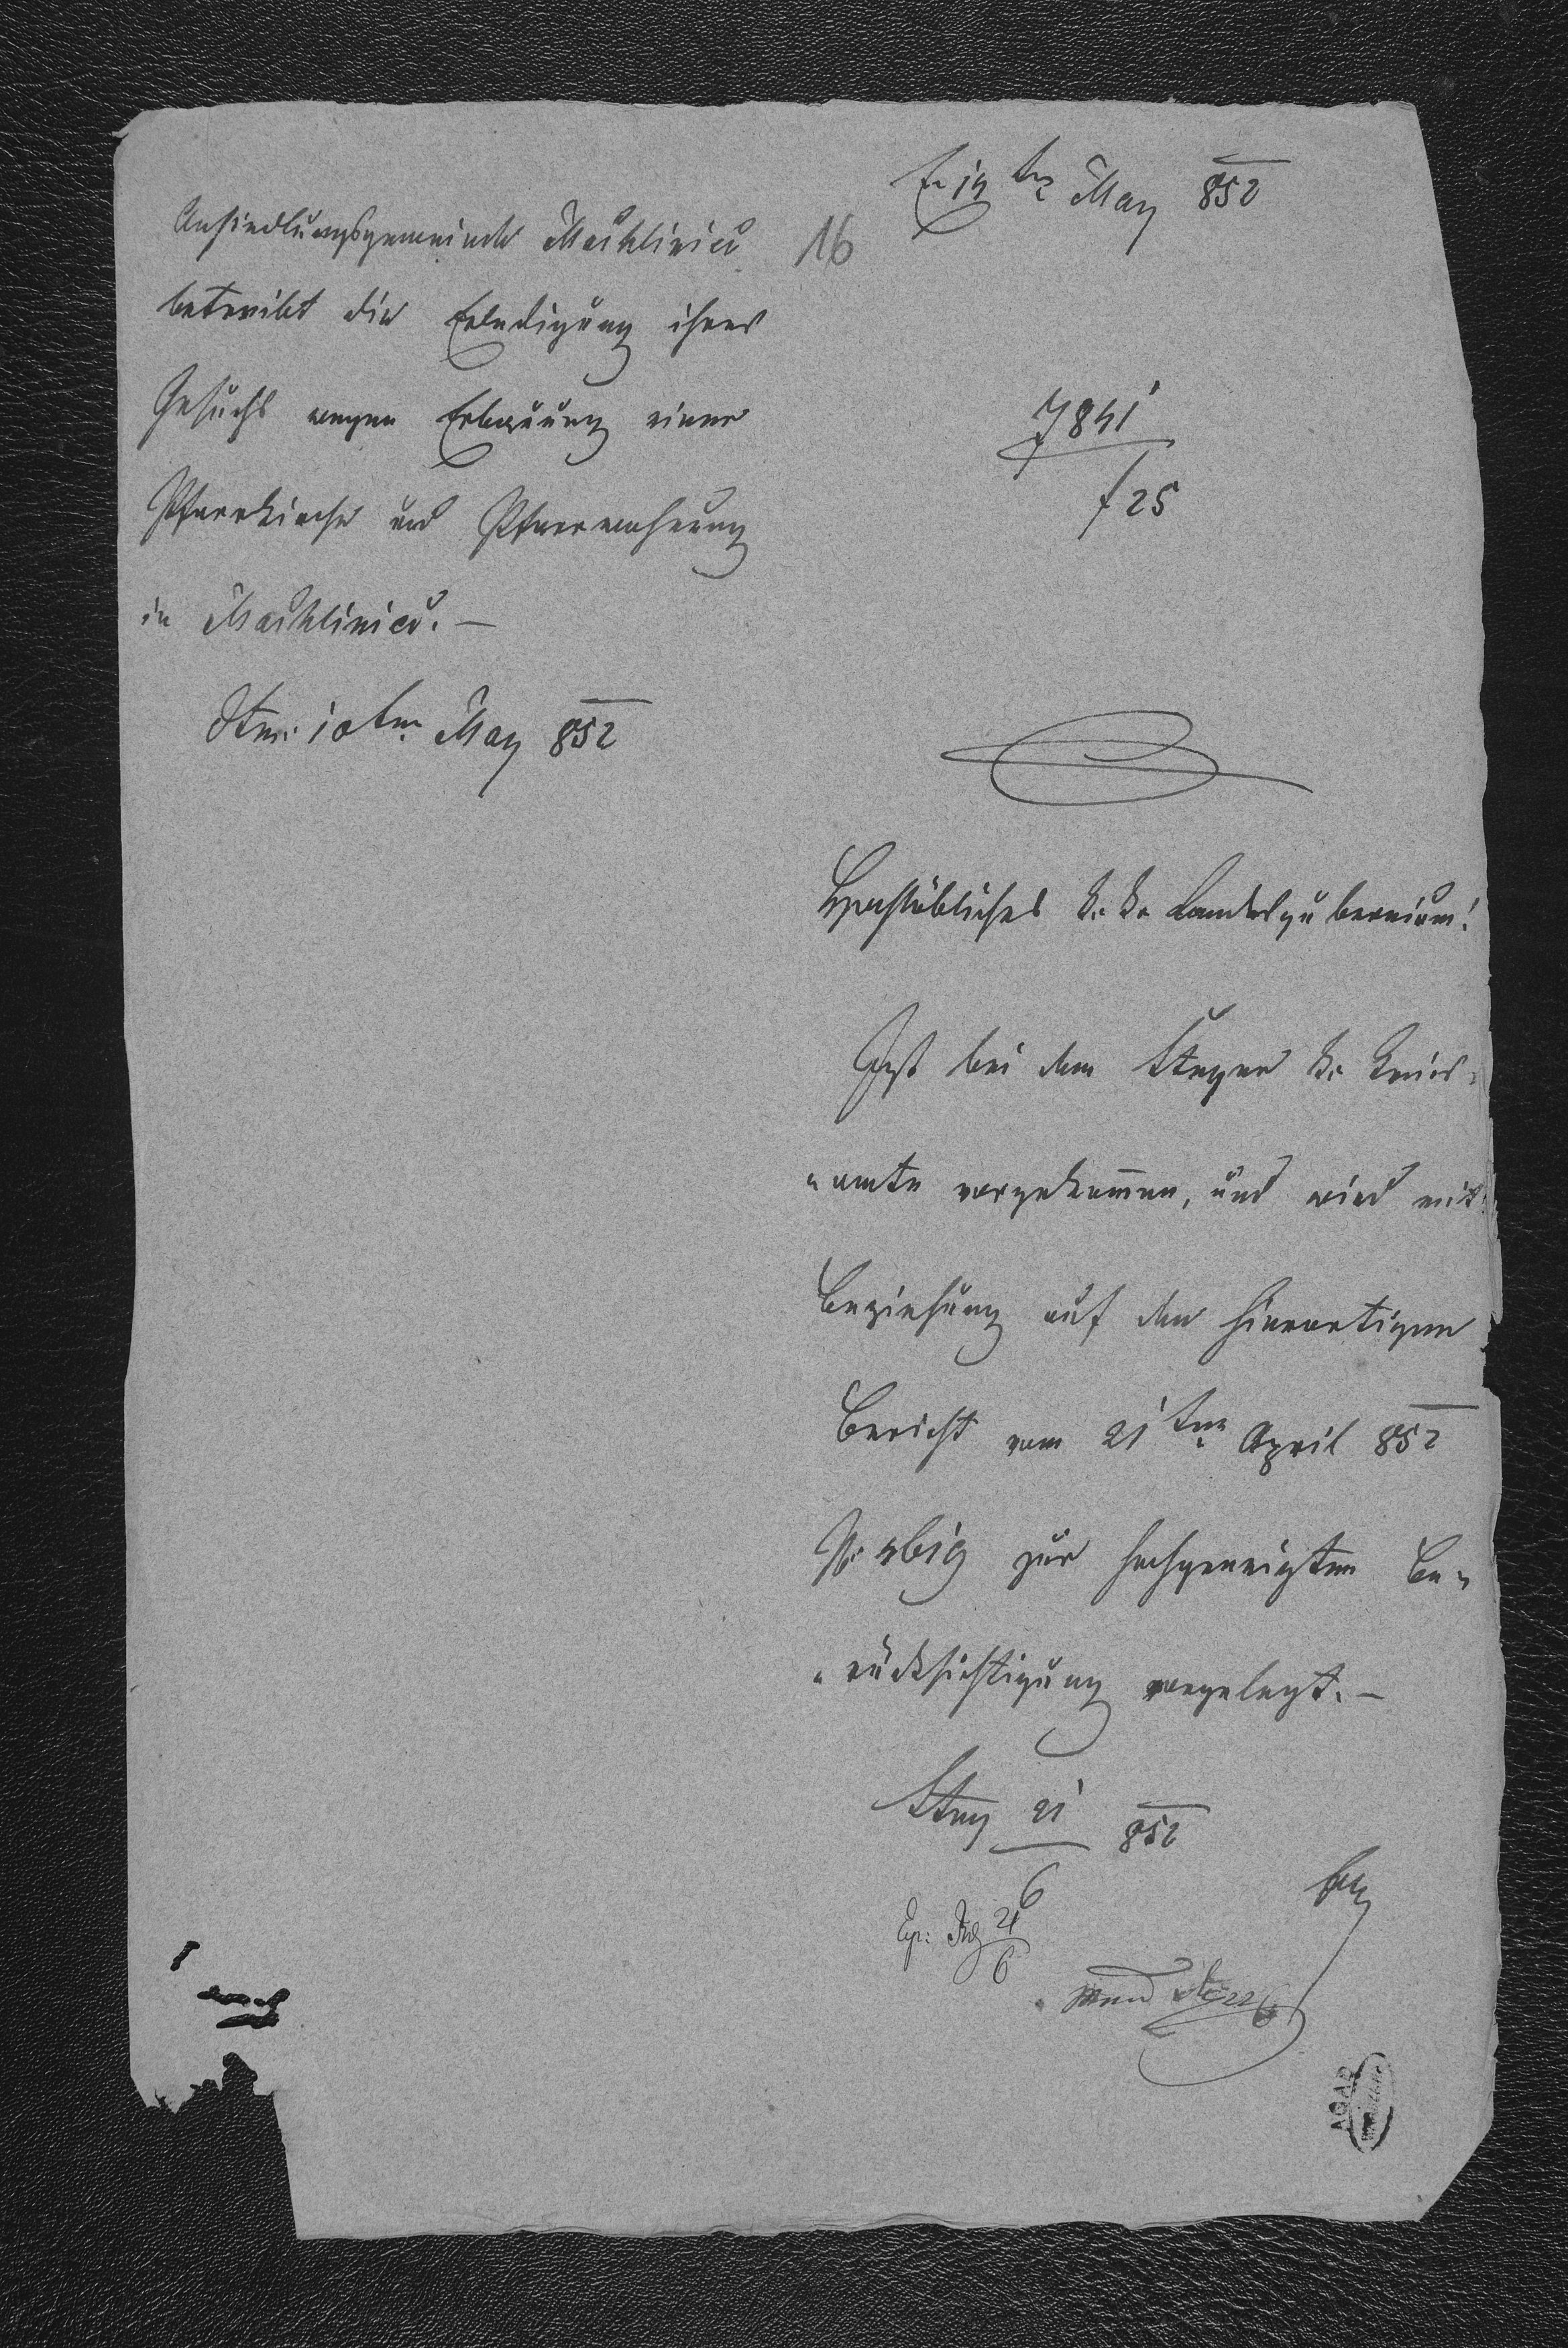 Ansiedlungsgemeinde Machliniec
betreibt die Erledigung ihres
Gesuchs wegen Erbauung einer
Pfarrkirche und Pfarrwohnung
in Machliniec. —
10ten May 852
16
May 852
7841
f 25
Hochlöbliches k. k. Landesgubernium!
Ist bei dem Stryer k. Kreis-
"amte vorgekommen, und wird mit
Beziehung auf den hierortigen
Bericht vom 21ten April 852
zur hochgeneigten Be-
"rücksichtigung vorgelegt. —
Stry 21/6 852
21/6
AGAD